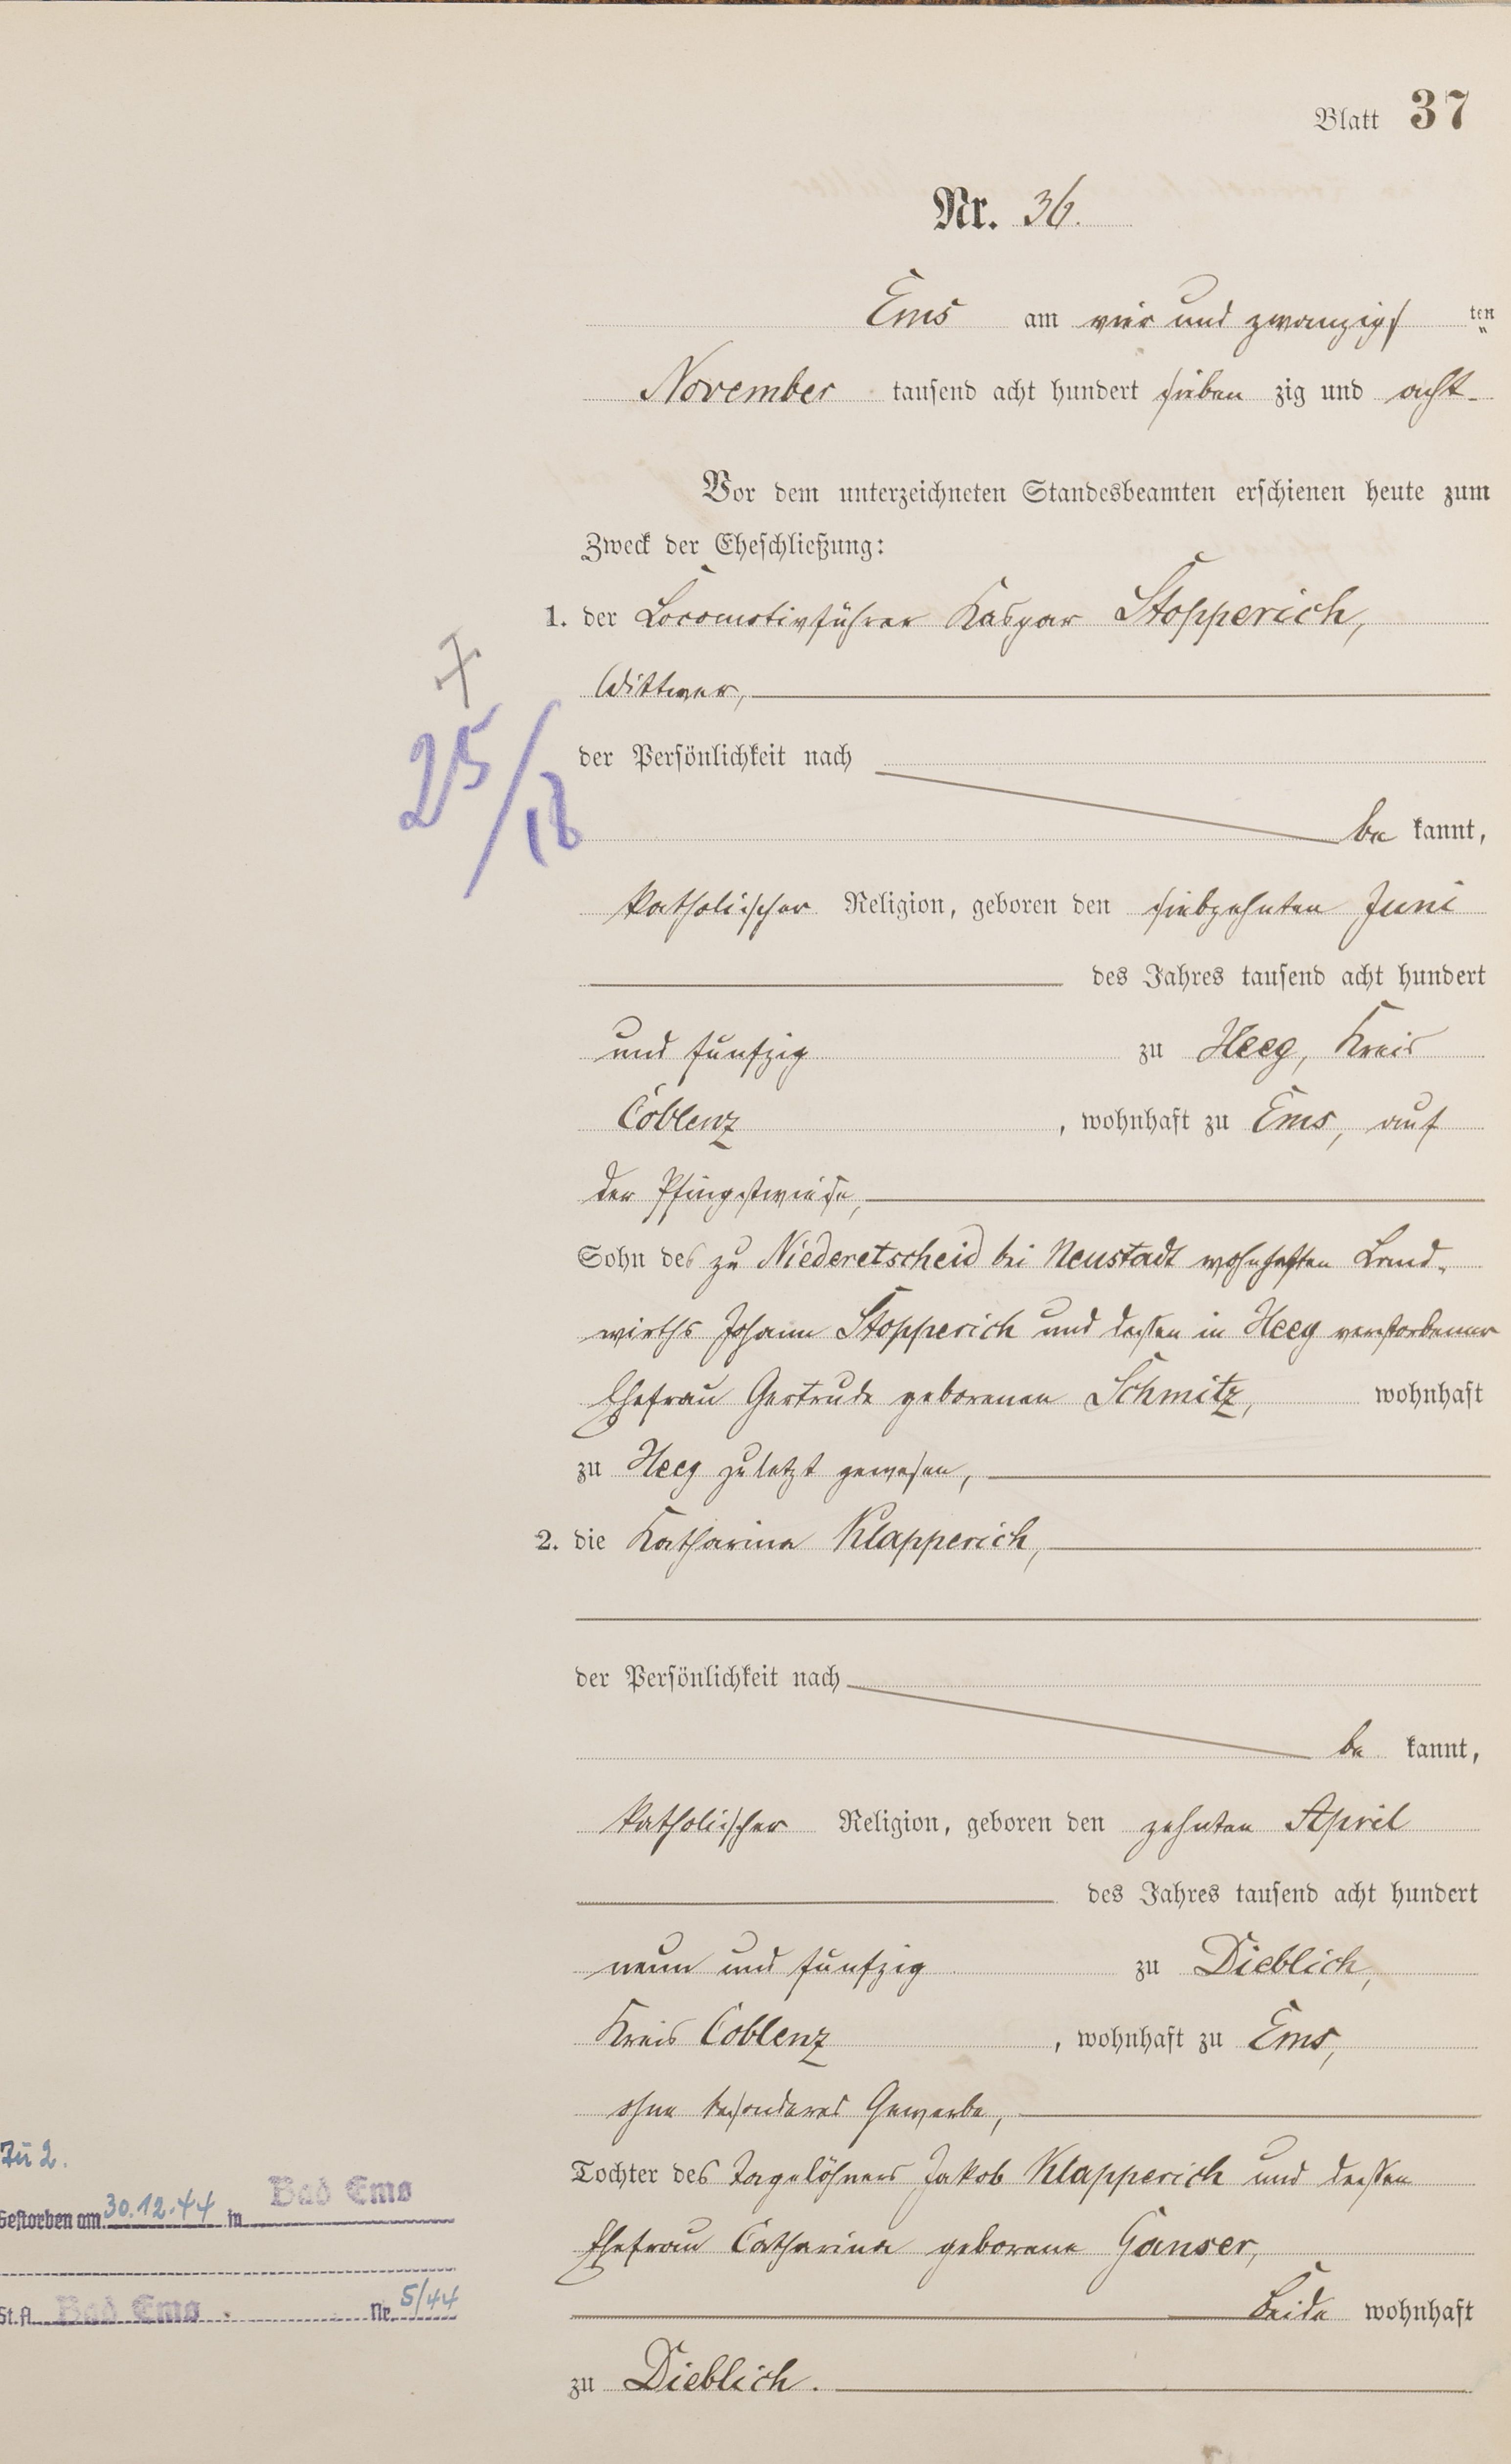 Blatt 37
Nr. 36.
Ems am vier und zwanzigs ten
November tausend acht hundert sieben zig und acht
Vor dem unterzeichneten Standesbeamten erschienen heute zum
Zweck der Eheschließung:
1. der Locomotivführer Kaspar Stopperich,
Wittwer,
der Persönlichkeit nach
be kannt,
katholischer Religion, geboren den siebzehnten Juni
des Jahres tausend acht hundert
und funfzig zu Heeg, Kreis
Coblenz, wohnhaft zu Ems, auf
der Pfingstwiese,
Sohn des zu Niederetscheid bei Neustadt wohnhaften Land-
wirths Johann Stopperich und dessen in Heeg verstorbener
Ehefrau Gertrude geborenen Schmitz, wohnhaft
zu Heeg zuletzt gewesen,
2. die Katharina Klapperich,
der Persönlichkeit nach
be kannt,
katholischer Religion, geboren den zehnten April
des Jahres tausend acht hundert
neun und funfzig zu Dieblich,
Kreis Coblenz, wohnhaft zu Ems,
ohne besonderes Gewerbe,
Tochter des Tagelöhners Jakob Klapperich und dessen
Ehefrau Catharina geborene Ganser,
beide wohnhaft
zu Dieblich.
25/18
Zu 2.
Gestorben am 30.12.44 in Bad Ems
St.A. Bad Ems Nr. 5/44